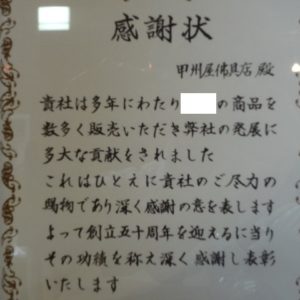 感謝状
甲州屋佛具店 殿
貴社は多年にわたり の商品を
数多く販売いただき弊社の発展に
多大な貢献をされました
これはひとえに貴社のご尽力の
賜物であり深く感謝の意を表します
よって創立五十周年を迎えるに当り
その功績を称え深く感謝し表彰
いたします